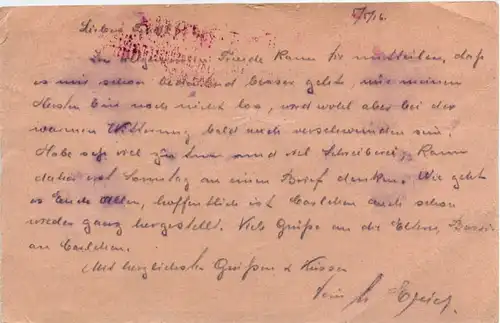 5/5/16.
Liebe
Zur allgemeinen Freude kann Dir mitteilen, daß
es mir schon bedeutend besser geht, nur meinen
Husten bin noch nicht los, wird wohl aber bei der
warmen Witterung bald auch verschwunden sein.
Habe sehr viel zu tun und viel Schreiberei, kann
daher erst Samstag an einen Brief denken. Wie geht
es Euch Allen, hoffentlich ist Carlchen auch schon
wieder ganz hergestellt. Viele Grüße an die Eltern,
an Carlchen.
Mit herzlichsten Grüßen & Küssen
Dein Erich.